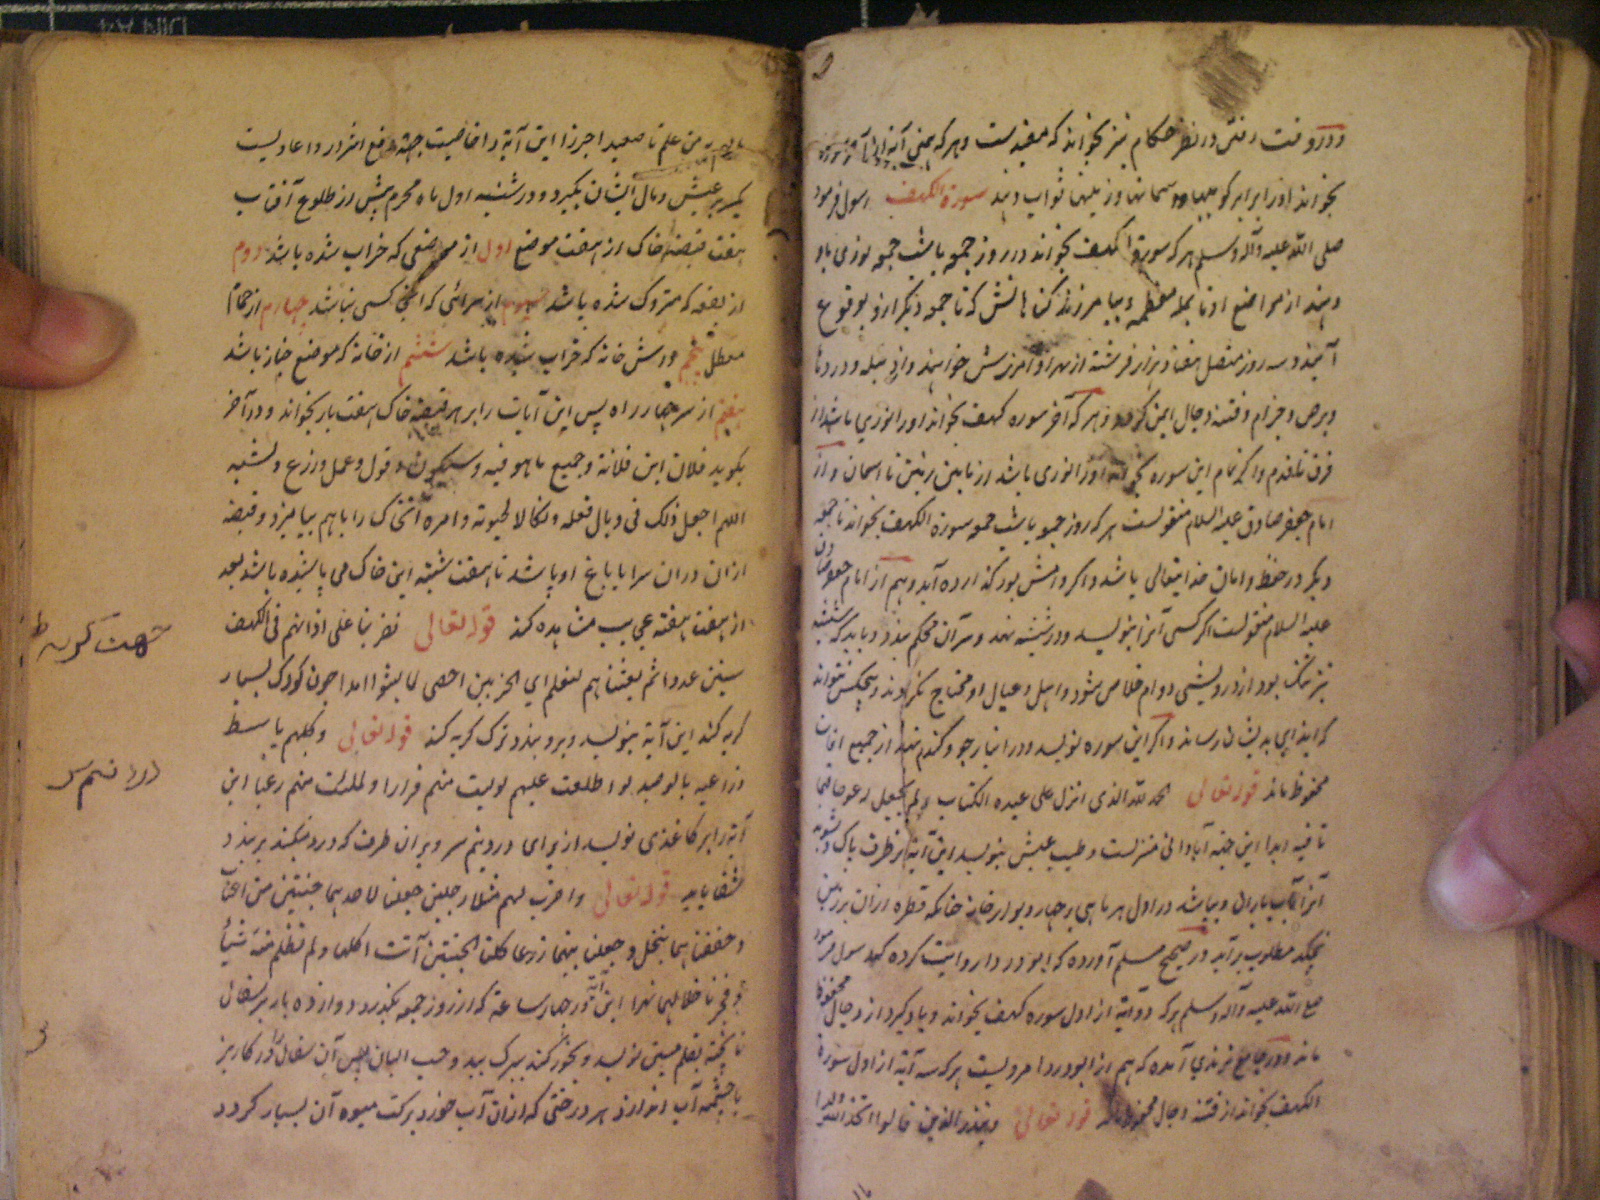 و در وقت رفتن در نظر حکام نیز بخواند که مفیدست و هر که یمنی آیة
بخواند او را برابر کوهها و آسمانها و زمینها ثواب دهند سورة الکهف رسول فرمود
صلی الله علیه وآله وسلم هر که سورة الکهف بخواند در روز جمعه یا شب جمعه نوری باو
دهند از مواضع او تا بمکه معظمه و بیامرزند گناهانش که تا جمعه دیگر ازو بوقوع
آیند و سه روز متصل هفتاد هزار فرشته از بهر او آمرزش خواهند و از دبیله و درد
و برص و جذام و فتنه دجال ایمن گردد و هر که آخر سوره کهف بخواند او را نوری باشد از
فرق تا قدم و اگر تمام این سوره بخواند او را نوری باشد از مابین زمین تا آسمان و از
امام جعفر صادق علیه السلام منقولست هر که روز جمعه یا شب جمعه سورة الکهف بخواند تا جمعه
دیگر در حفظ و امان خدایتعالی باشد و اگر وامش بود گذارده آید و هم از امام جعفر صادق
علیه السلام منقولست اگر کسی آنرا بنویسد و در شیشه نهد و سر آن محکم ببندد و باید که شیشه
نیز تنک بود از درویشی و وام خلاص شود و اهل و عیال او محتاج نگردند و هیچکس نتواند
که ایذای بدیشان رساند و اگر این سوره نویسد و در انبار جو و گندم نهد از جمیع آفات
محفوظ ماند قوله تعالی الحمد لله الذی انزل علی عبده الکتاب ولم یجعل له عوجا قیما
تا فیه ابدا این جهة آبادانی منزلست و طیب عیش بنویسد این آیة بر ظرف پاک و بشوید
آنرا بآب باران و بپاشد در اول هر ماهی بر چهار دیوار خانه چنانکه قطره ازان بر زمین
نچکد مطلوب برآید در صحیح مسلم آورده که ابو دردا روایت کرده که رسول فرمود
صلی الله علیه وآله وسلم هر که ده آیة از اول سوره کهف بخواند و یاد گیرد از دجال محفوظ
ماند و در جامع ترمذی آمده که هم از ابو دردا مرویست هر که سه آیة از اول سورة
الکهف بخواند از فتنه دجال محفوظ ماند قوله تعالی وینذر الذین قالوا اتخذ الله ولدا
مالهم به من علم تا صعیدا جرزا این آیة را خاصیت جهة دفع اشرار و اعادیست
بگیرد و در شنبه اول ماه محرم پیش از طلوع آفتاب
هفت قبضه خاک از هفت موضع اول از موضعی که خراب شده باشد دوم
از بقعه که متروک شده باشد سیوم از سرائی که آنجا کسی نباشد چهارم از حمام
معطل پنجم از آتش خانه که خراب شده باشد ششم از خانه که موضع جنازه باشد
هفتم از سر چهار راه پس این آیات را بر هر قبضه خاک هفت بار بخواند و در آخر
بگوید فلان ابن فلانة و جمیع ما هو فیه و سکون و قول و عمل و زرع و
اللهم اجعل ذلک فی وبال فعله ونکالا لحیوته وامره آنخاک را باهم بیامیزد و قبضه
ازان دران سرا یا باغ او پاشد تا هفت شنبه این خاک می پاشیده باشد بعد
از هفت هفته عجایب مشاهده کند قوله تعالی فضربنا علی اذانهم فی الکهف
سنین عددا ثم بعثناهم لنعلم ای الحزبین احصی لما لبثوا امدا چون کودک بسیار
گریه کند این آیة بنویسد و برو بندد ترک گریه کند قوله تعالی وکلبهم باسط
ذراعیه بالوصید لو اطلعت علیهم لولیت منهم فرارا ولملئت منهم رعبا این
آیة را بر کاغذی نویسد از برای درد نیم سر و بران طرف که درد میکند بربندد
شفا یابد قوله تعالی واضرب لهم مثلا رجلین جعلنا لاحدهما جنتین من اعناب
وحففناهما بنخل وجعلنا بینهما زرعا کلتا الجنتین آتت اکلها ولم تظلم منه شیئا
وفجرنا خلالهما نهرا این آیة در چهار ساعة که از روز جمعه بگذرد دوازده بار بر سفال
ناپخته بقلم مسین نویسد و بخور کند ببرک بید و حب البان پس آن سفال در کاریز
یا چشمه آب اندازد هر درختی که ازان آب خورد برکت میوه آن بسیار گردد
جهت گریه طفل
درد نیم سر